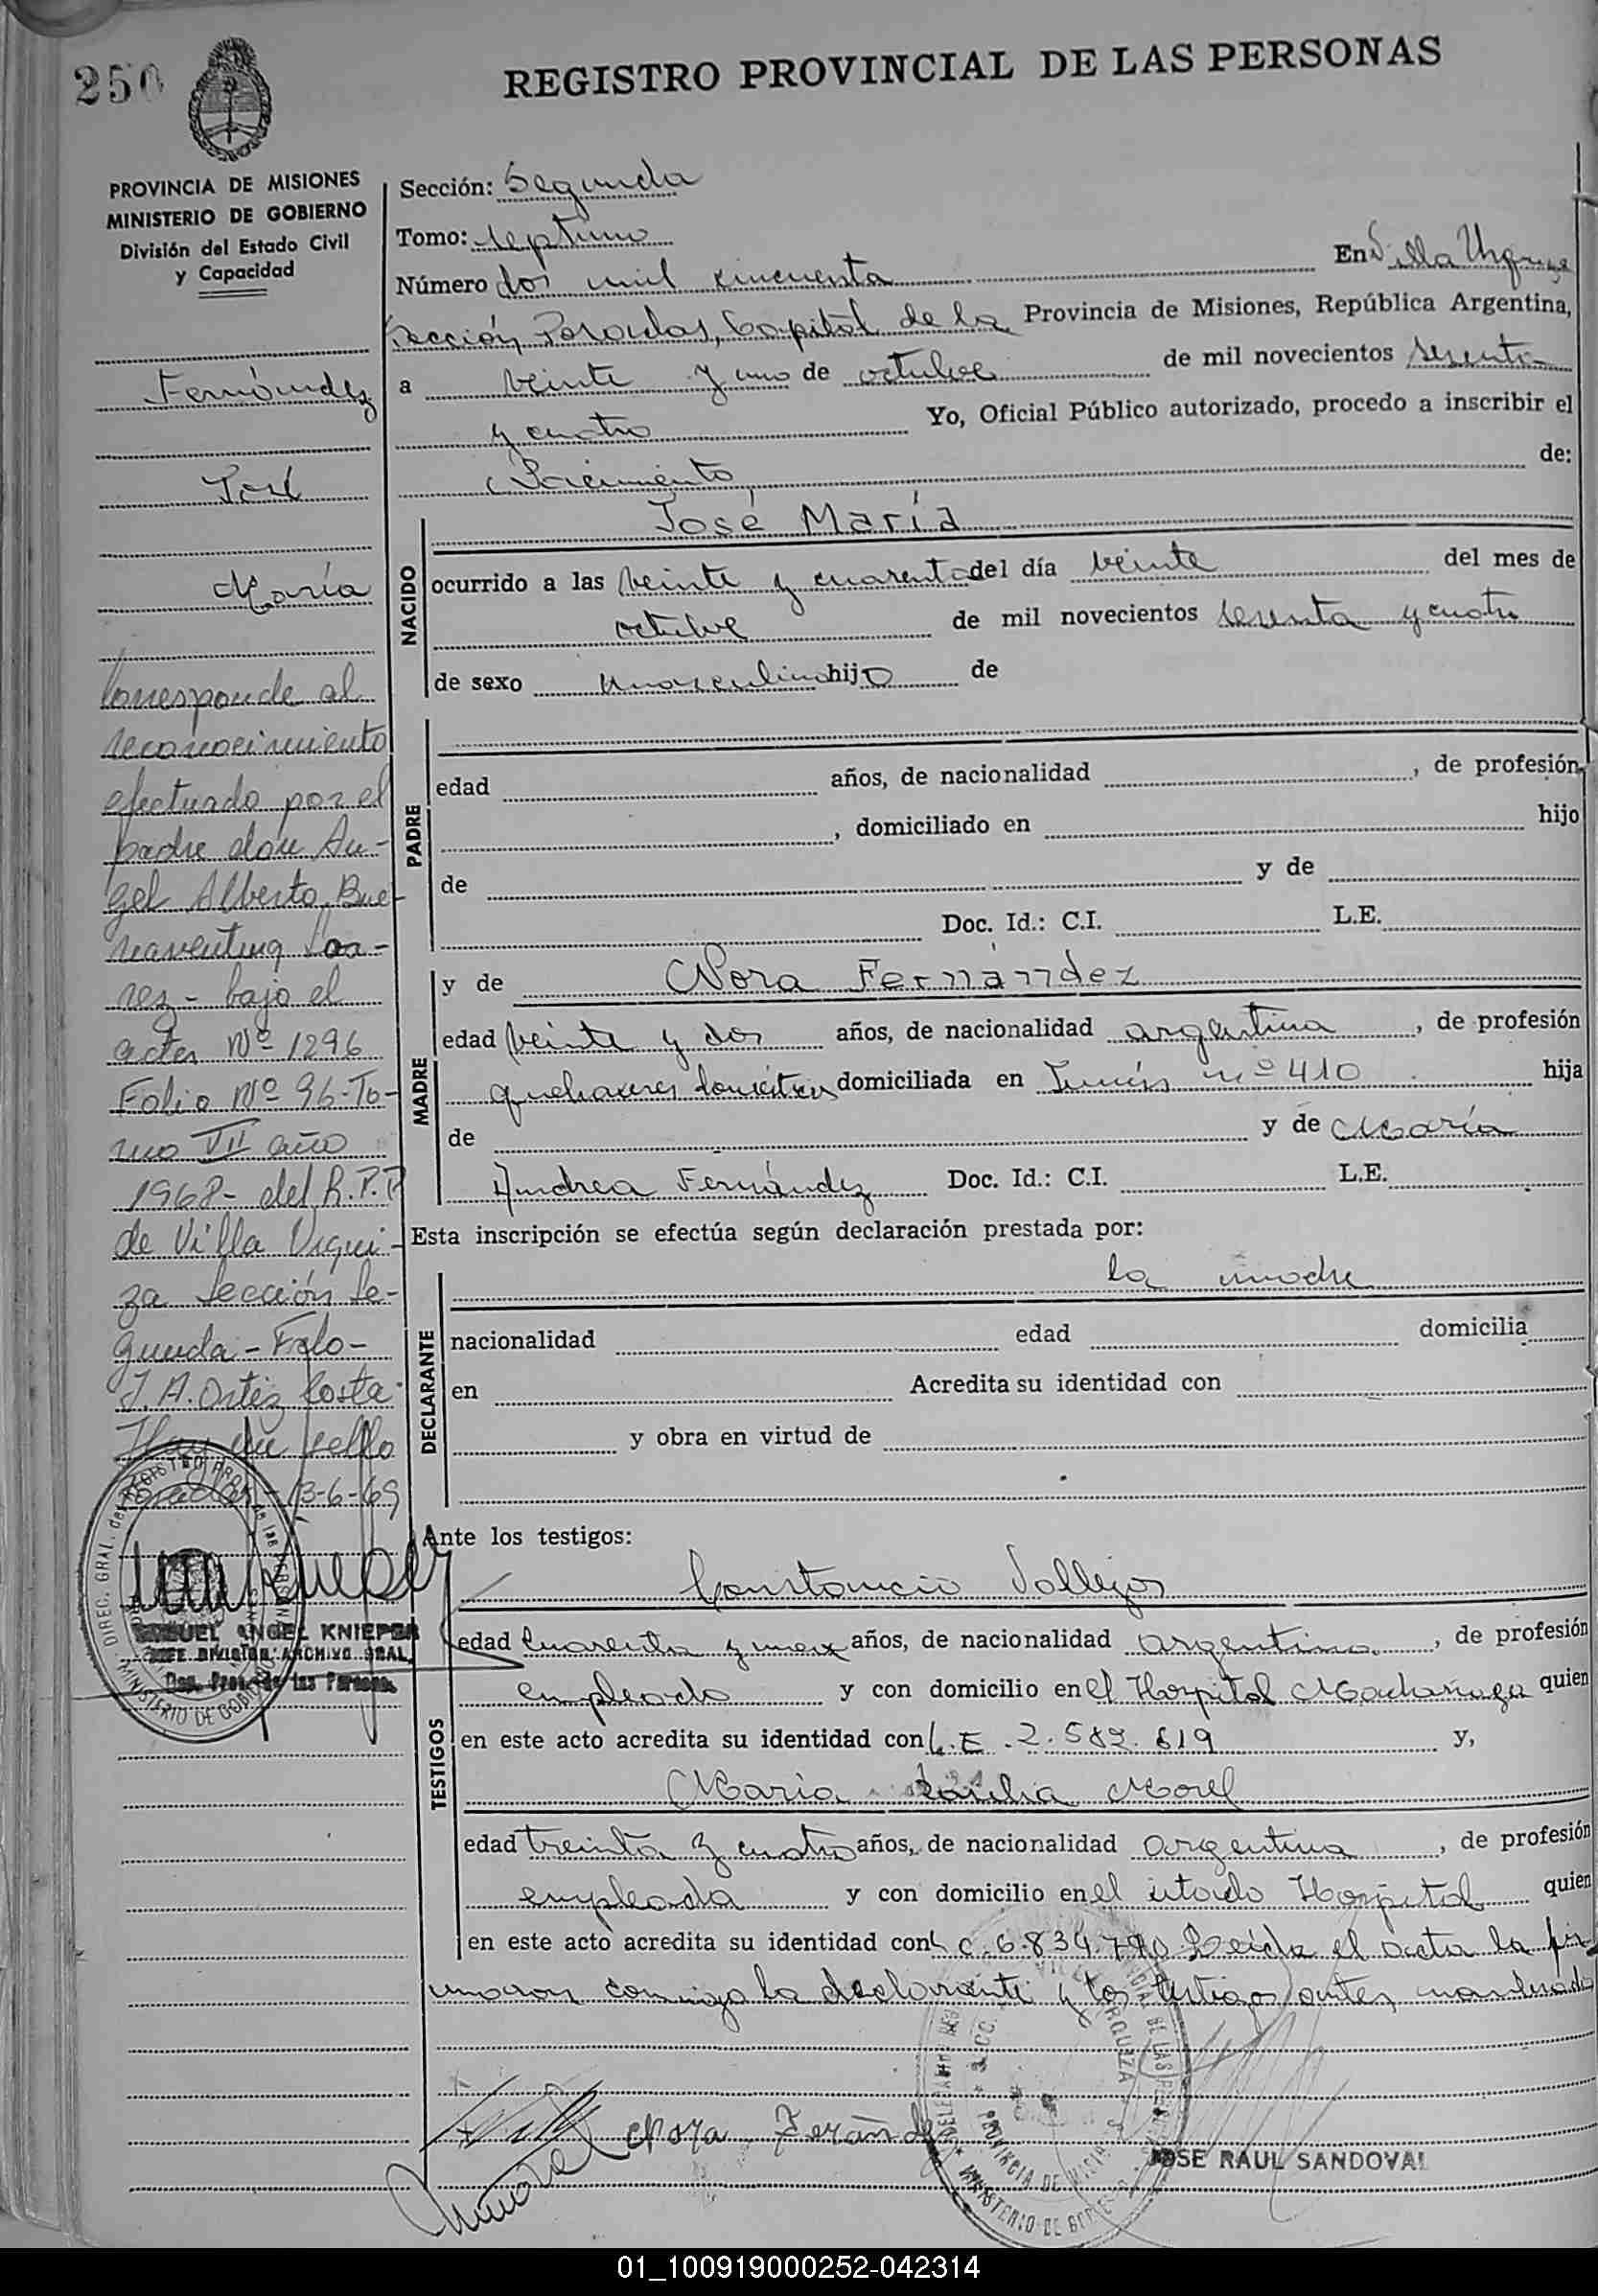 250
REGISTRO PROVINCIAL DE LAS PERSONAS
PROVINCIA DE MISIONES
MINISTERIO DE GOBIERNO
División del Estado Civil
y Capacidad
Fernández
José
María
Corresponde al
reconocimiento
efectuado por el
padre don An-
gel Alberto Bue-
naventura
rez - bajo el
acta Nº 1296
Folio Nº 96 - To-
mo VII año
1968 - del R.P.P
de Villa Urqui-
za Sección Se-
gunda - Fdo -
J. A. Ortiz Costa
Hay un sello
Posadas - 13-6-69
MIGUEL ANGEL KNIEPER
JEFE DIVISION ARCHIVO GRAL.
Reg. Prov. de las Personas
Sección: Segunda
Tomo: septimo
Número dos mil cincuenta En Villa Urquiza
Sección Posadas, Capital de la Provincia de Misiones, República Argentina,
a veinte y uno de octubre de mil novecientos sesenta
y cuatro Yo, Oficial Público autorizado, procedo a inscribir el
Nacimiento de:
NACIDO
José María
ocurrido a las veinte y cuarenta del día veinte del mes de
octubre de mil novecientos sesenta y cuatro
de sexo masculino hijo de
PADRE
edad años, de nacionalidad , de profesión
, domiciliado en hijo
de y de
Doc. Id.: C.I. L.E.
MADRE
y de Nora Fernández
edad veinte y dos años, de nacionalidad argentina , de profesión
quehaceres domésticos domiciliada en Junín nº 410 hija
de y de María
Andrea Fernández Doc. Id.: C.I. L.E.
Esta inscripción se efectúa según declaración prestada por:
DECLARANTE
la madre
nacionalidad edad domicilia
en Acredita su identidad con
y obra en virtud de
Ante los testigos:
TESTIGOS
Constancio Vallejos
edad Cuarenta y nueve años, de nacionalidad argentina , de profesión
empleado y con domicilio en el Hospital Madariaga quien
en este acto acredita su identidad con L.E. 2.582.619 y,
María Morel
edad treinta y cuatro años, de nacionalidad argentina , de profesión
empleada y con domicilio en el citado Hospital quien
en este acto acredita su identidad con L C. 6.834.790 Leída el acta la fir
maron conmigo la declarante y los testigos antes nombrados
Nora Ferández
JOSE RAUL SANDOVAL
01_100919000252-042314